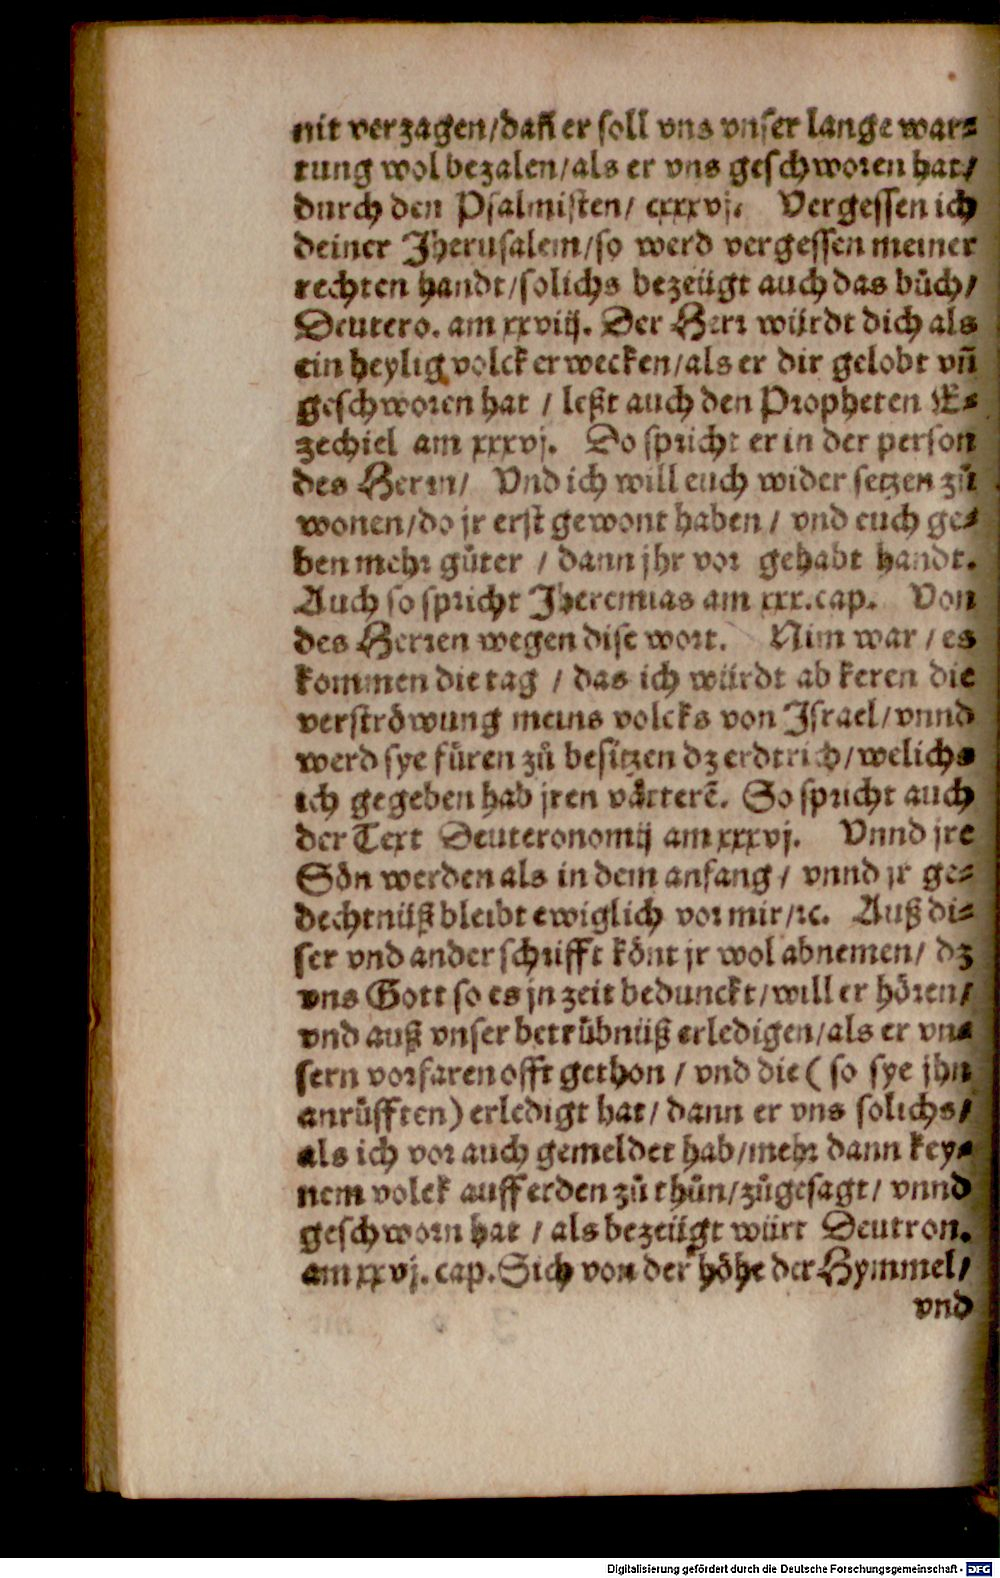 nit verzagen/dañ er soll vns vnser lange war⸗
tung wol bezalen/als er vns geschworen hat/
durch den Psalmisten/ cxxxvj. Vergessen ich
deiner Jherusalem/so werd vergessen meiner
rechten handt/solichs bezeügt auch das bůch/
Deutero. am xxviij. Der Herr würdt dich als
ein heylig volck erwecken/als er dir gelobt vñ
geschworen hat / leßt auch den Propheten E⸗
zechiel am xxxvj. Do spricht er in der person
des Herrn/ Vnd ich will euch wider setzen zů
wonen/do jr erst gewont haben / vnd euch ge⸗
ben mehr gůter / dann jhr vor gehabt handt.
Auch so spricht Jheremias am xxx.cap. Von
des Herren wegen dise wort. Nim war / es
kommen die tag / das ich würdt ab keren die
verströwung meins volcks von Jsrael/vnnd
werd sye fůren zů besitzen dz erdtrich/welichs
ich gegeben hab jren våtterẽ. So spricht auch
der Text Deuteronomij am xxxvj. Vnnd jre
Sön werden als in dem anfang / vnnd jr ge⸗
dechtnüß bleibt ewiglich vor mir/ꝛc. Auß di⸗
ser vnd ander schrifft könt jr wol abnemen/ dz
vns Gott so es jn zeit bedunckt/will er hören/
vnd auß vnser betrůbnüß erledigen/als er vn⸗
sern vorfaren offt gethon / vnd die ( so sye jhn
anrůfften) erledigt hat/ dann er vns solichs/
als ich vor auch gemeldet hab/mehr dann key⸗
nem volck auff erden zů thůn/zůgesagt/ vnnd
geschworn hat / als bezeügt würt Deutron.
am xxvj. cap. Sich von der höhe der Hymmel/
vnd
Digitalisierung gefördert durch die Deutsche Forschungsgemeinschaft - DFG